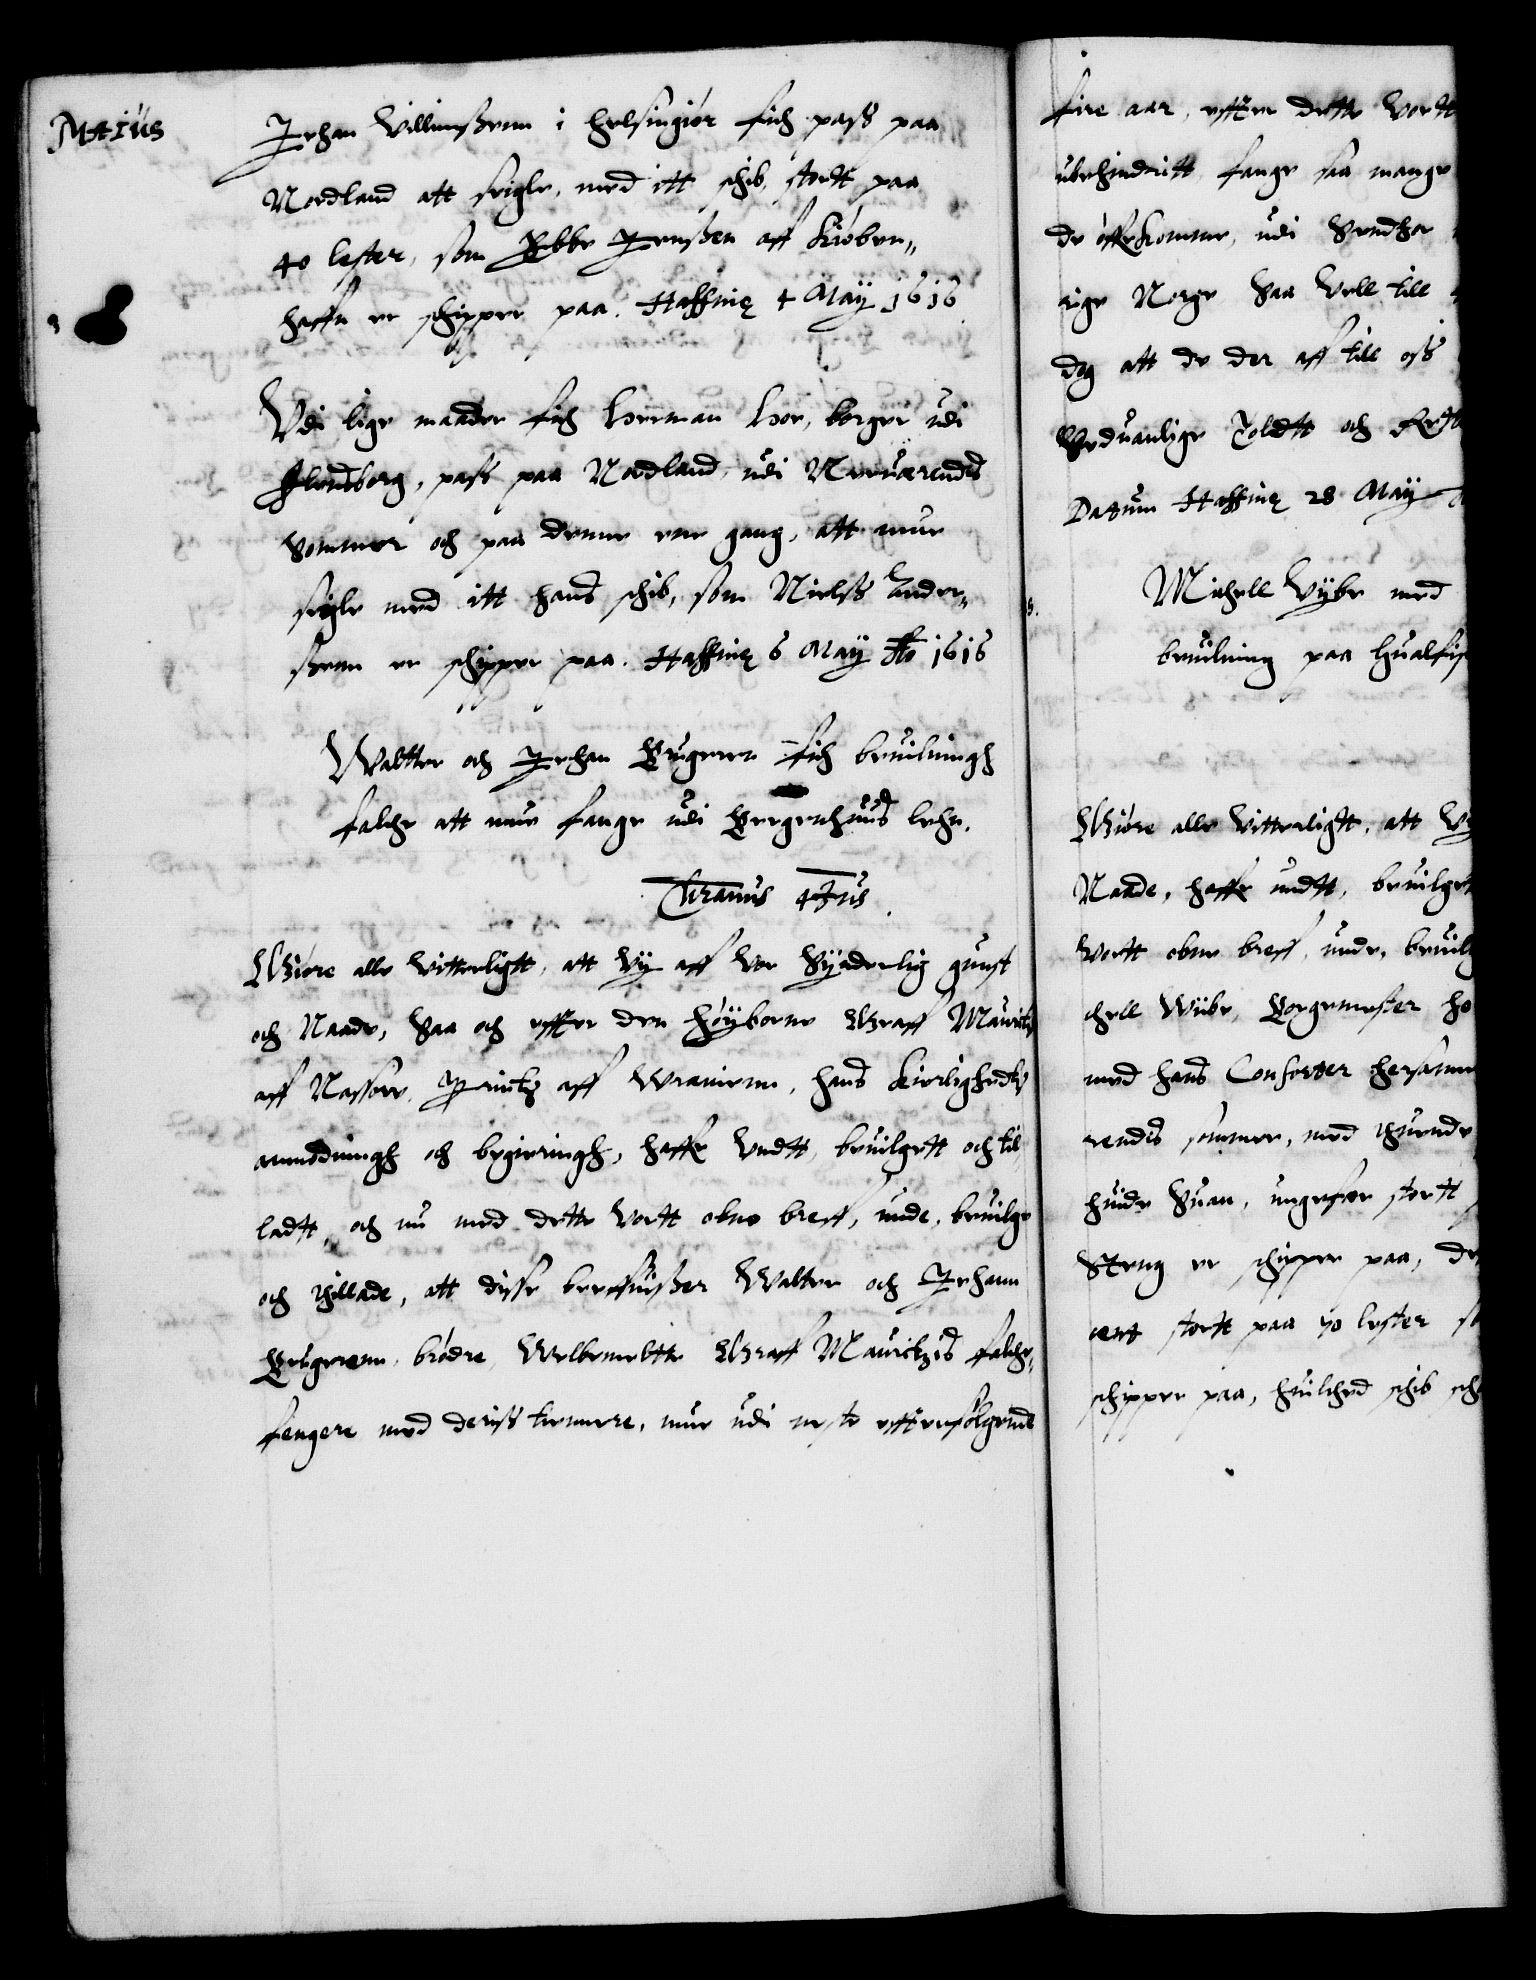 Maius
Johan Villumßenn i Helsingiør fich pass paa
Nordland att seigle, med itt schib, stortt paa
40 lester, som Ebbe Jenßen aff Kiøben„
haffn er schipper paa. Haffniæ 4 Maÿ 1616.
Udi lige maader fich Herman Loer, borger udi
Flensborg, pass paa Nordland, udi Neruærendis
Sommer och paa denne ene gang, att mue
seigle med itt hans schib, som Nielss Ander„
ßenn er schipper paa. Haffniæ 6 Maÿ Ao 1616
Waltter och Johan Brugeren fich beuilningh
falche att mue fange udi Bergenhuus lehn.
Chranus 4tus.
Giøre alle vitterligtt, att Vÿ aff Vor Sÿnderlig gunst
och Naade, Saa och effter den Høÿborne Graff Mauritz
aff Nassow, Printz aff Wranienn, hans Kierlighedtz
anmodningh och begieringh, haffe Undtt, beuilgett och til
ladtt, och nu med dette Vortt obne breff, unde, beuilge
och thillade, att disse breffuißer Walter och Johann
Brugerenn, brødre, Welbemeltte Graff Mauritzis falche„
fengere med deriss tiennere, mue udi neste effterfølgende
fire aar, effter dette Vortt
ubehindritt fange saa mange
de offuerkomme, udi Sendher
rige Norge Saa Vell till
dog att de der aff till oss
Seduanlige Toldtt och Rett
Datum Haffniæ 28 Maÿ A
Michell Vÿbe med
beuilning paa Hualfis
Giøre alle Vitterligtt, att Vÿ
Naade, haffe undtt, beuilget
vortt obne breff, unde, beuilg
chell Wiibe, Borgemester ho
med hans Consorter thersamme
rendis sommer, med thuende
huide Suan, ungefer stortt
Steng er schipper paa, de
rent stortt paa 70 lester so
schipper paa, huilched schib sch